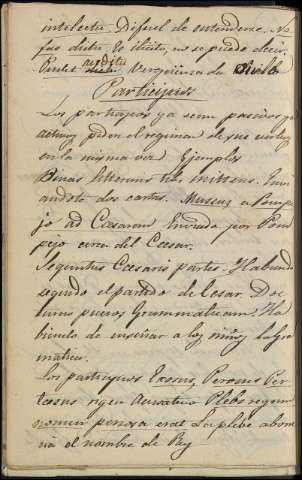 intelectu. Dificil de entenderse. Ne
fas dictu. Yo ilicito, no se puede decir.
Pudet auditu Vergüenza da oirlo
Participios
Los participios ya sean pasivos ya
activos piden el regimen de sus verbos
en la misma voz Ejemplos
Binas litteras tibi mittens. Envi
andote dos cartas. Missus a Pompe
jo ad Caesarem Enviado por Pom
peyo cerca del Cesar.
Sequutus Caesaris partes. Habiendo
seguido el partido de Cesar. Doc
turus pueros Grammaticam. Ha
biendo de enseñar a los niños la Gra
matica.
Los participios Exosus, Perosus Per
taesus rigen acusativo Plebs regium
nomen perosa erat La plebe aborre
cia el nombre de Rey